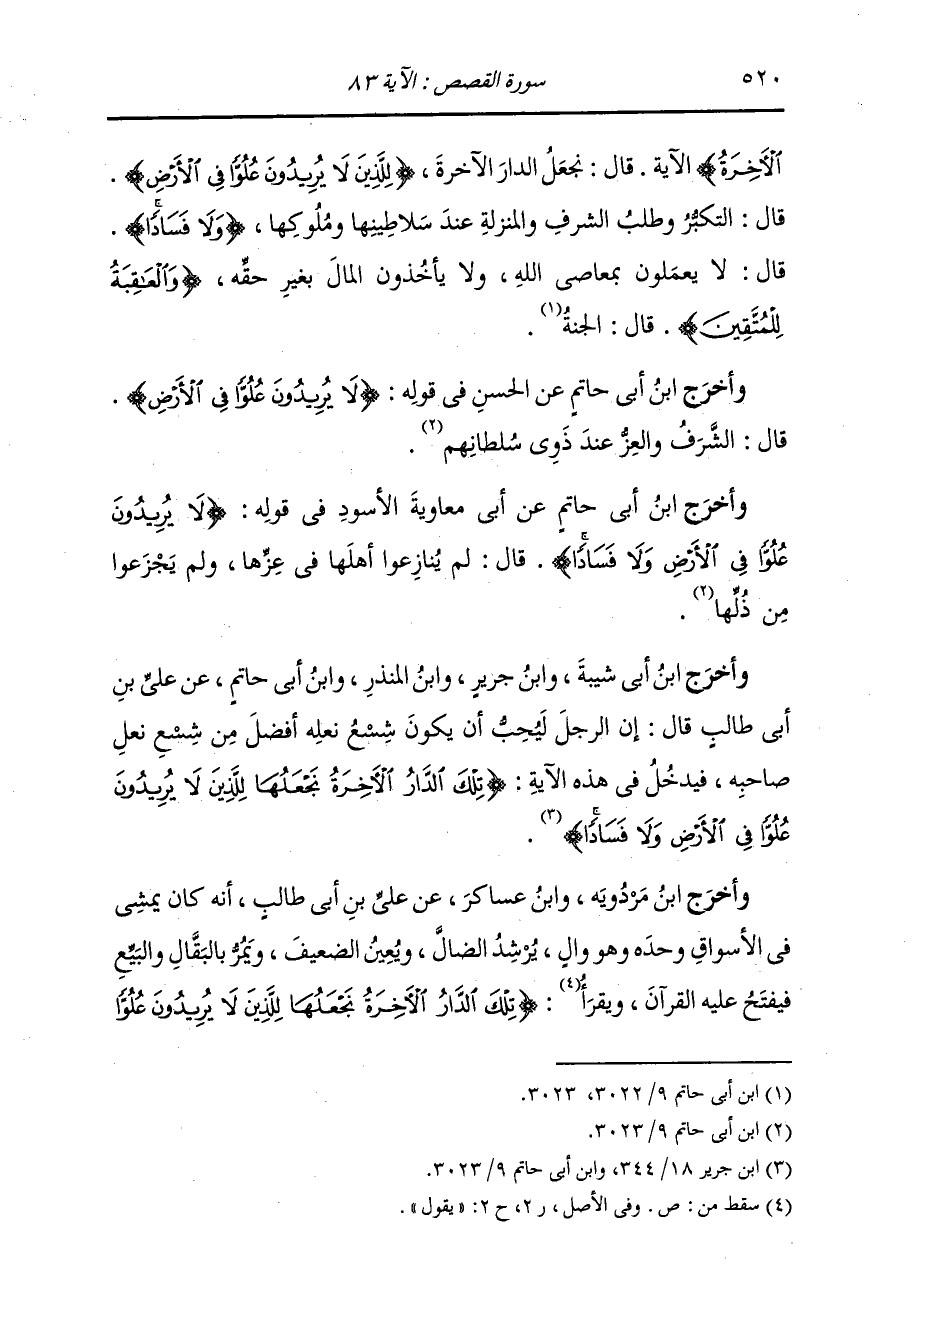 ٥٢٠ سورة القصص : الآية ٨٣
ٱلْأَخِرَةُ﴾ الآية . قال : نجعَلُ الدارَ الآخرةَ ، ﴿لِلَّذِينَ لَا يُرِيدُونَ عُلُوًّا فِى ٱلْأَرْضِ﴾ .
قال : التكبُّرُ وطلبُ الشرفِ والمنزلةِ عندَ سَلاطِينِها ومُلُوكِها ، ﴿وَلَا فَسَادًا﴾ .
قال : لا يعمَلون بمعاصى اللهِ ، ولا يأخُذون المالَ بغيرِ حقِّه ، ﴿وَٱلْعَٰقِبَةُ
لِلْمُتَّقِينَ﴾ . قال : الجنةُ(١) .
وأخرَج ابنُ أبى حاتمٍ عن الحسنِ فى قولِه : ﴿لَا يُرِيدُونَ عُلُوًّا فِى ٱلْأَرْضِ﴾ .
قال : الشَّرَفُ والعِزُّ عندَ ذَوِى سُلطانِهم(٢) .
وأخرَج ابنُ أبى حاتمٍ عن أبى معاويةَ الأسودِ فى قولِه : ﴿لَا يُرِيدُونَ
عُلُوًّا فِى ٱلْأَرْضِ وَلَا فَسَادًا﴾ . قال : لم يُنازِعوا أهلَها فى عِزِّها ، ولم يَجْزَعوا
مِن ذُلِّها(٢) .
وأخرَج ابنُ أبى شيبةَ ، وابنُ جريرٍ ، وابنُ المنذرِ ، وابنُ أبى حاتمٍ ، عن علىِّ بنِ
أبى طالبٍ قال : إن الرجلَ لَيُحِبُّ أن يكونَ شِسْعُ نعلِه أفضلَ مِن شِسْعِ نعلِ
صاحبِه ، فيدخُلُ فى هذه الآيةِ : ﴿تِلْكَ ٱلدَّارُ ٱلْأَخِرَةُ نَجْعَلُهَا لِلَّذِينَ لَا يُرِيدُونَ
عُلُوًّا فِى ٱلْأَرْضِ وَلَا فَسَادًا﴾(٣) .
وأخرَج ابنُ مَرْدُويَه ، وابنُ عساكرَ ، عن علىِّ بنِ أبى طالبٍ ، أنه كان يمشِى
فى الأسواقِ وحدَه وهو والٍ ، يُرْشِدُ الضالَّ ، ويُعِينُ الضعيفَ ، ويَمُرُّ بالبَقَّالِ والبَيِّعِ
فيفتَحُ عليه القرآنَ ، ويقرَأُ(٤) : ﴿تِلْكَ ٱلدَّارُ ٱلْأَخِرَةُ نَجْعَلُهَا لِلَّذِينَ لَا يُرِيدُونَ عُلُوًّا
(١) ابن أبى حاتم ٩/ ٣٠٢٢، ٣٠٢٣.
(٢) ابن أبى حاتم ٩/ ٣٠٢٣.
(٣) ابن جرير ١٨/ ٣٤٤، وابن أبى حاتم ٩/ ٣٠٢٣.
(٤) سقط من : ص . وفى الأصل ، ر ٢، ح ٢: «يقول» .